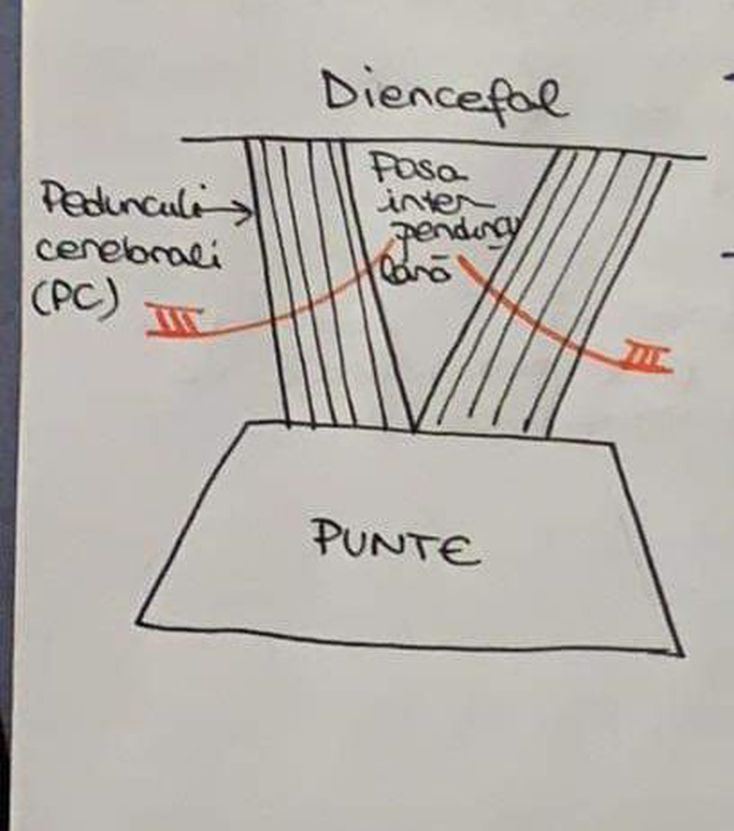 Diencefal
Pedunculi
cerebrali
(PC)
Fosa
inter
pendincu
lară
III
III
PUNTE